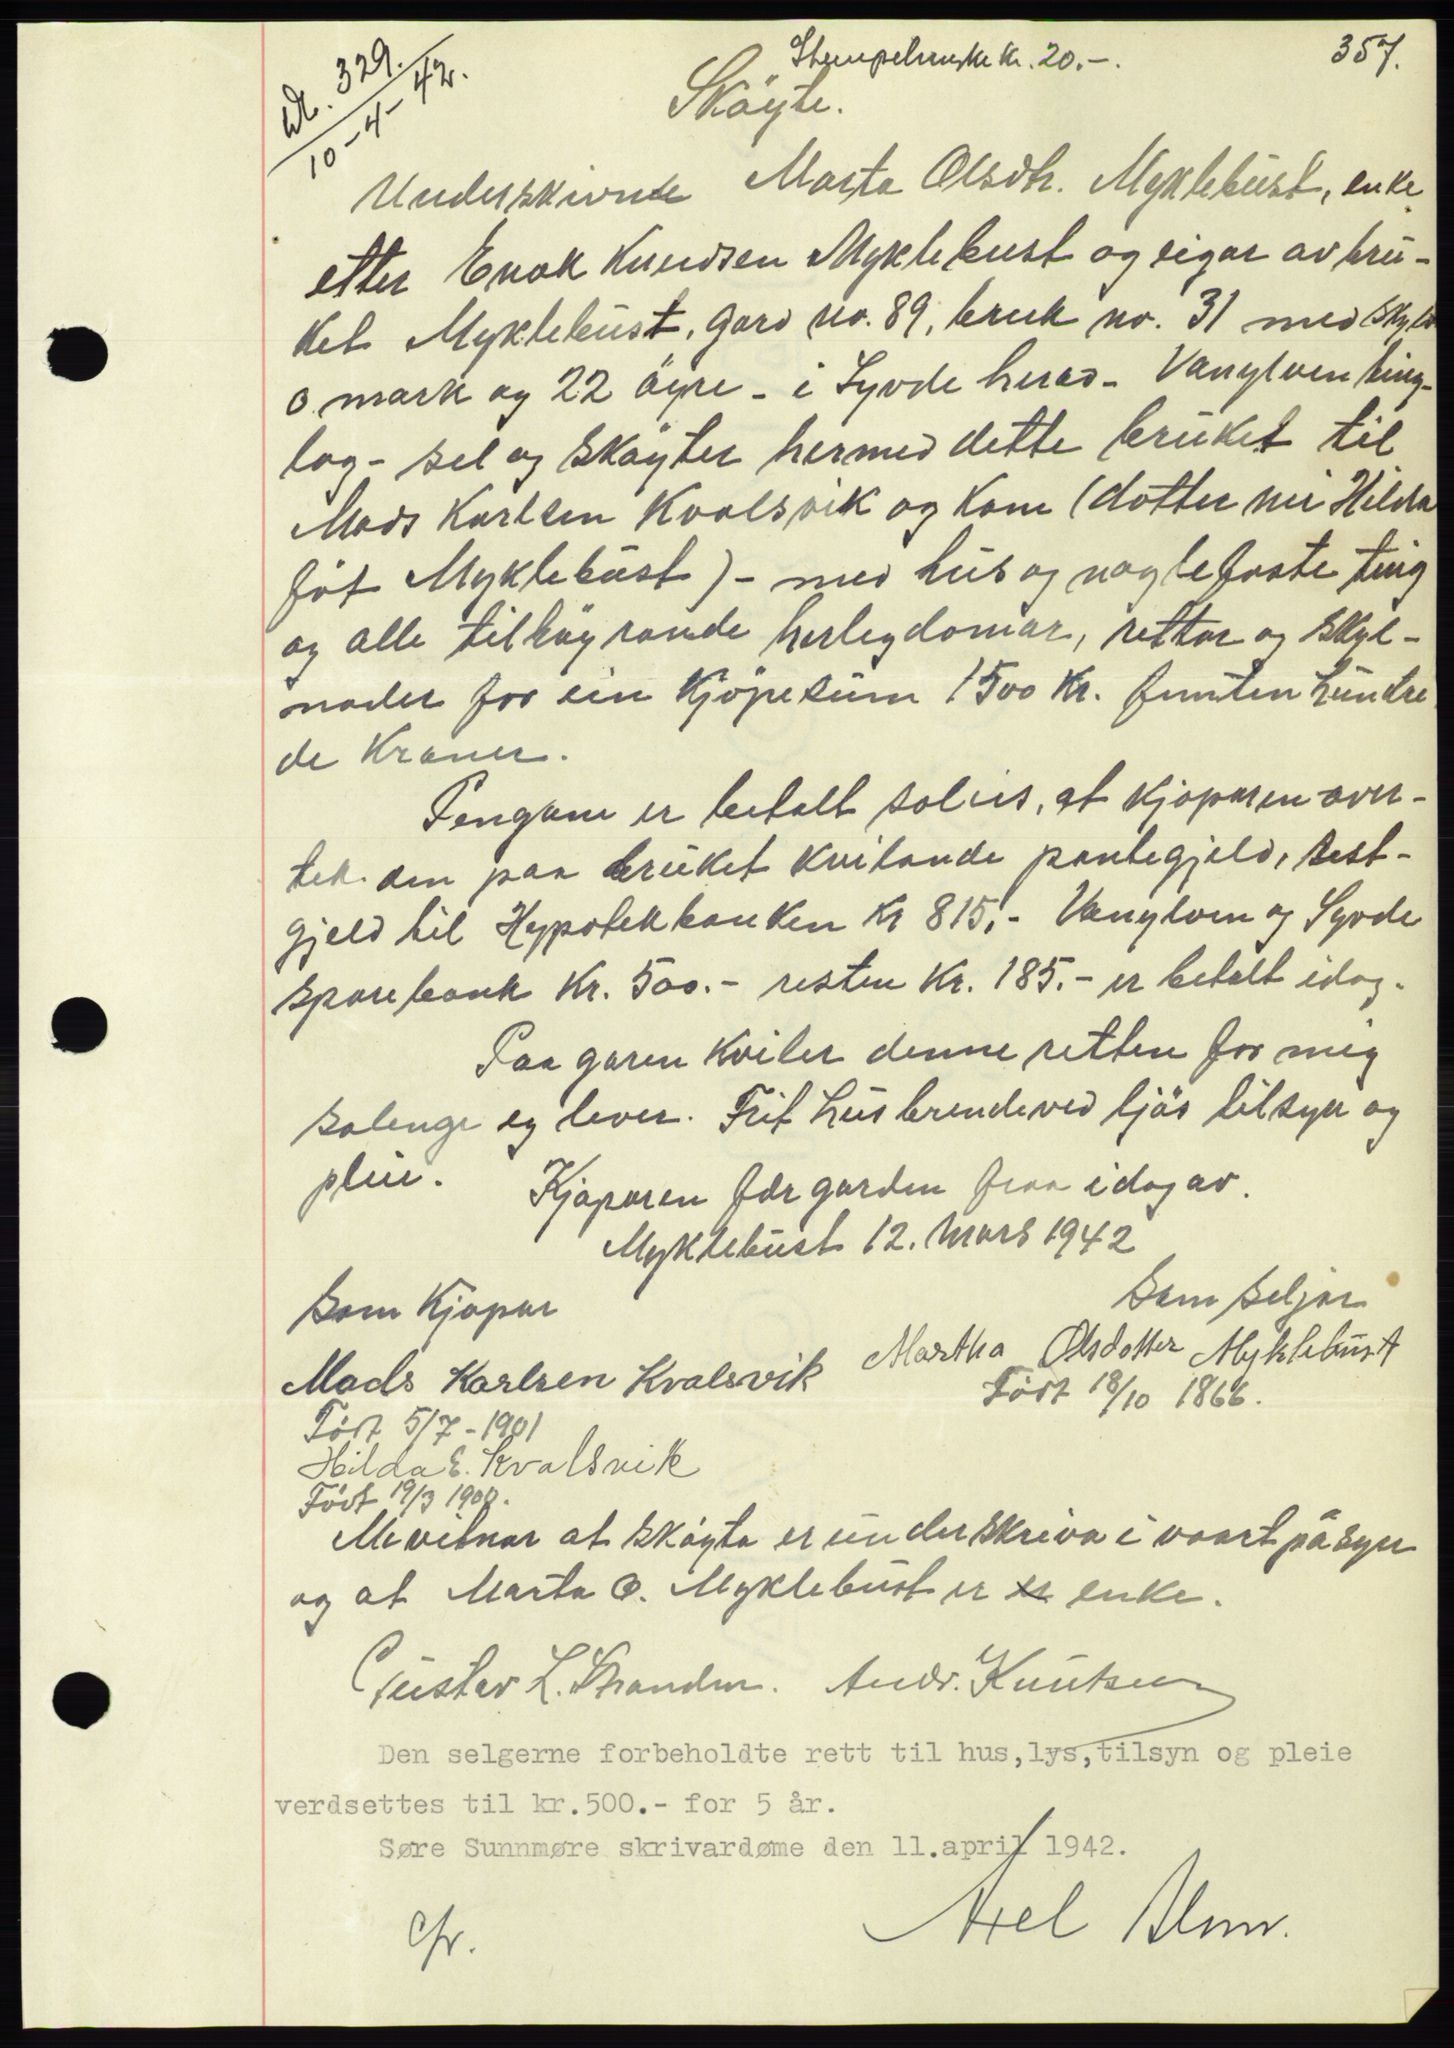 Stempelmerke kr. 20.-.
357.
No. 329.
10-4-42.
Sköyte.
Underskivne Marta Olsdtr. Myklebust, enke
etter Enok Knudsen Myklebust og eigar av bru-
ket Myklebust, gard no. 89, bruk no. 31 med skyld
0 mark og 22 öyre - i Syvde herad - Vanylven ting-
lag - sel og sköyter hermed dette bruket til
Mads Karlsen Kvalsvik og kone (dotter mi Hilda
föt Myklebust) - med hus og naglefaste ting
og alle tilhøyrande herlegdomar, rettar og skyl-
nader for ein kjöpesum 1500 kr. femten hundre
de kroner.
Pengane er betalt solies, at kjøparen over-
tek den paa bruket kvilande pantegjeld, rest-
gjeld til Hypotekbanken kr 815,- Vanylven og Syvde
sparebank kr. 500.- resten kr. 185.- er betalt idag.
Paa garen kviler denne retten for mig
solenge eg lever. Frit hus brendeved ljös tilsyn og
pleie. Kjøparen fær garden fraa idag av.
Myklebust 12. Mars 1942
Som Kjøpar
Som Seljar
Mads Karlsen Kvalsvik
Martha Olsdotter Myklebust
Født 18/10 1866.
Født 5/7-1901
Hilda E. Kvalsvik
Født 19/3 1900.
Me vitnar at sköyta er underskriva i vaart påsyn
og at Marta O. Myklebust er enke.
Gustav L. Strandm. Andr. Knutsen
Den selgerne forbeholdte rett til hus,lys,tilsyn og pleie
verdsettes til kr.500.- for 5 år.
Søre Sunnmøre skrivardøme den 11.april 1942.
Axel